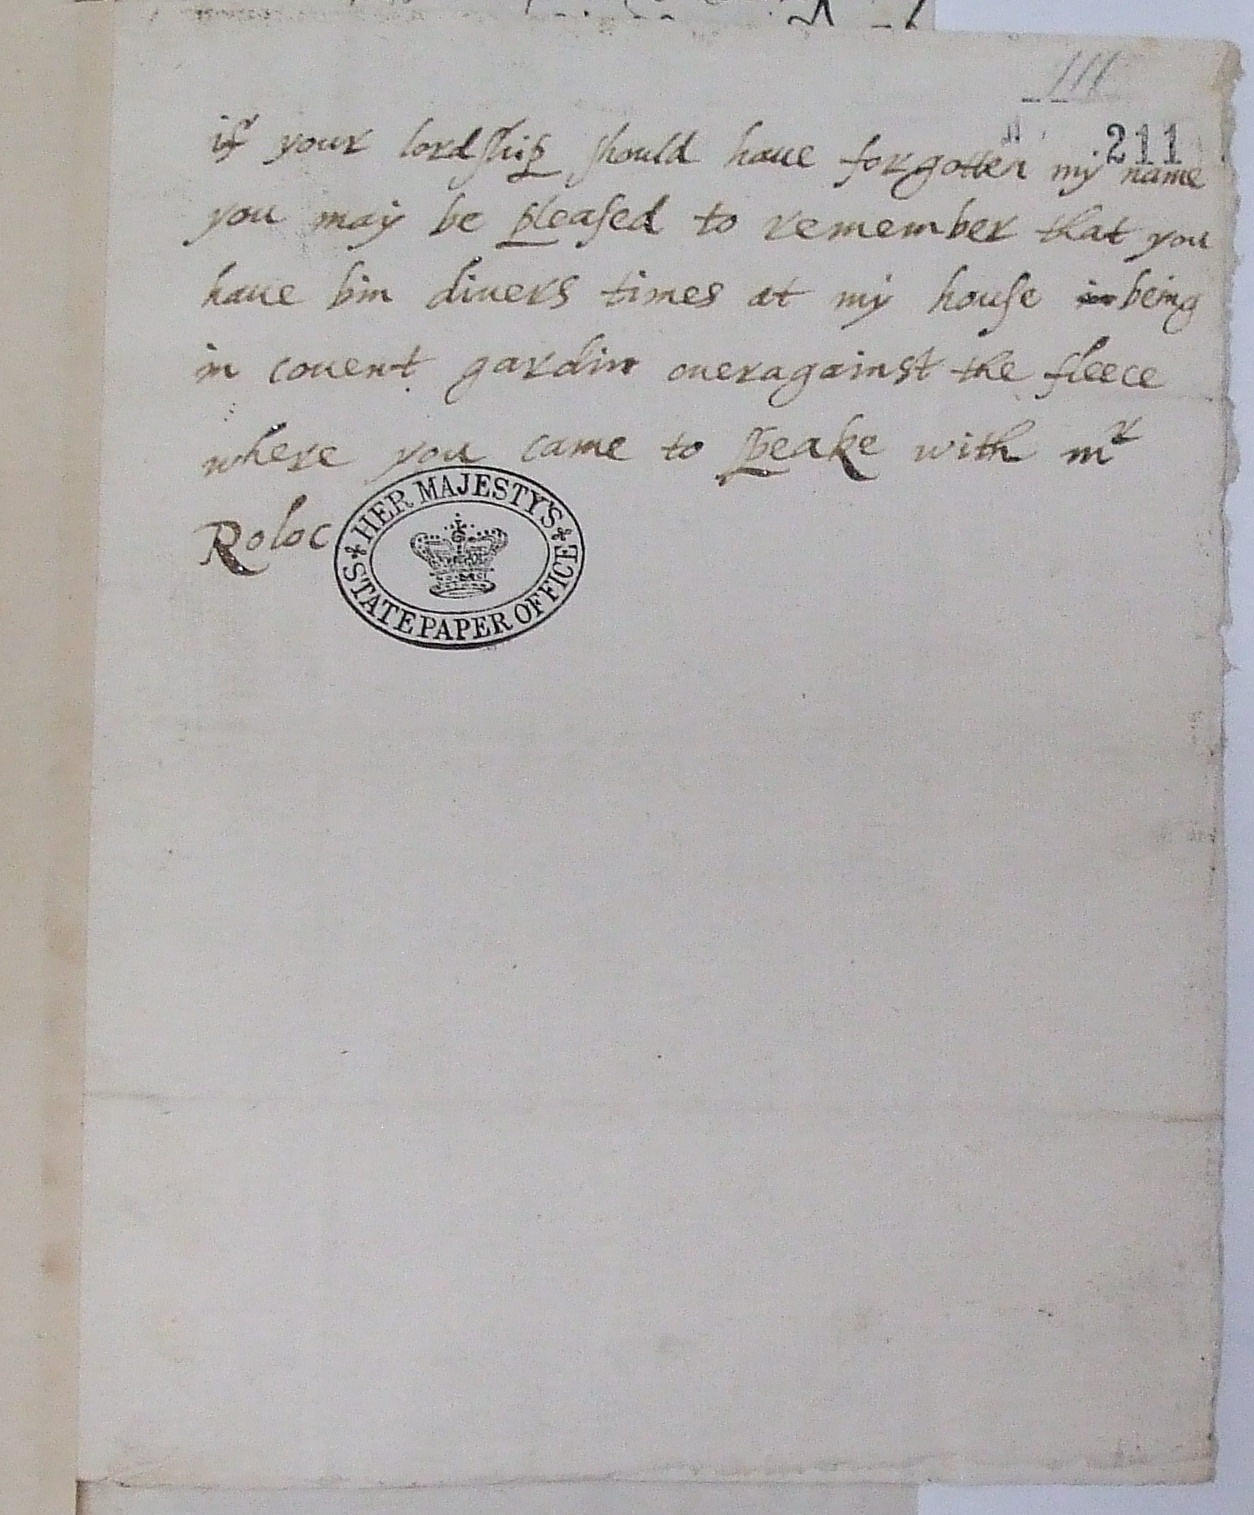 111
211
if your lordship should haue forgotten my name
you may be pleased to remember that you
haue bin diuers times at my house in being
in couent gardin oueragainst the fleece
where you came to speake with mr
Roloc
HER MAJESTY'S
STATE PAPER OFFICE